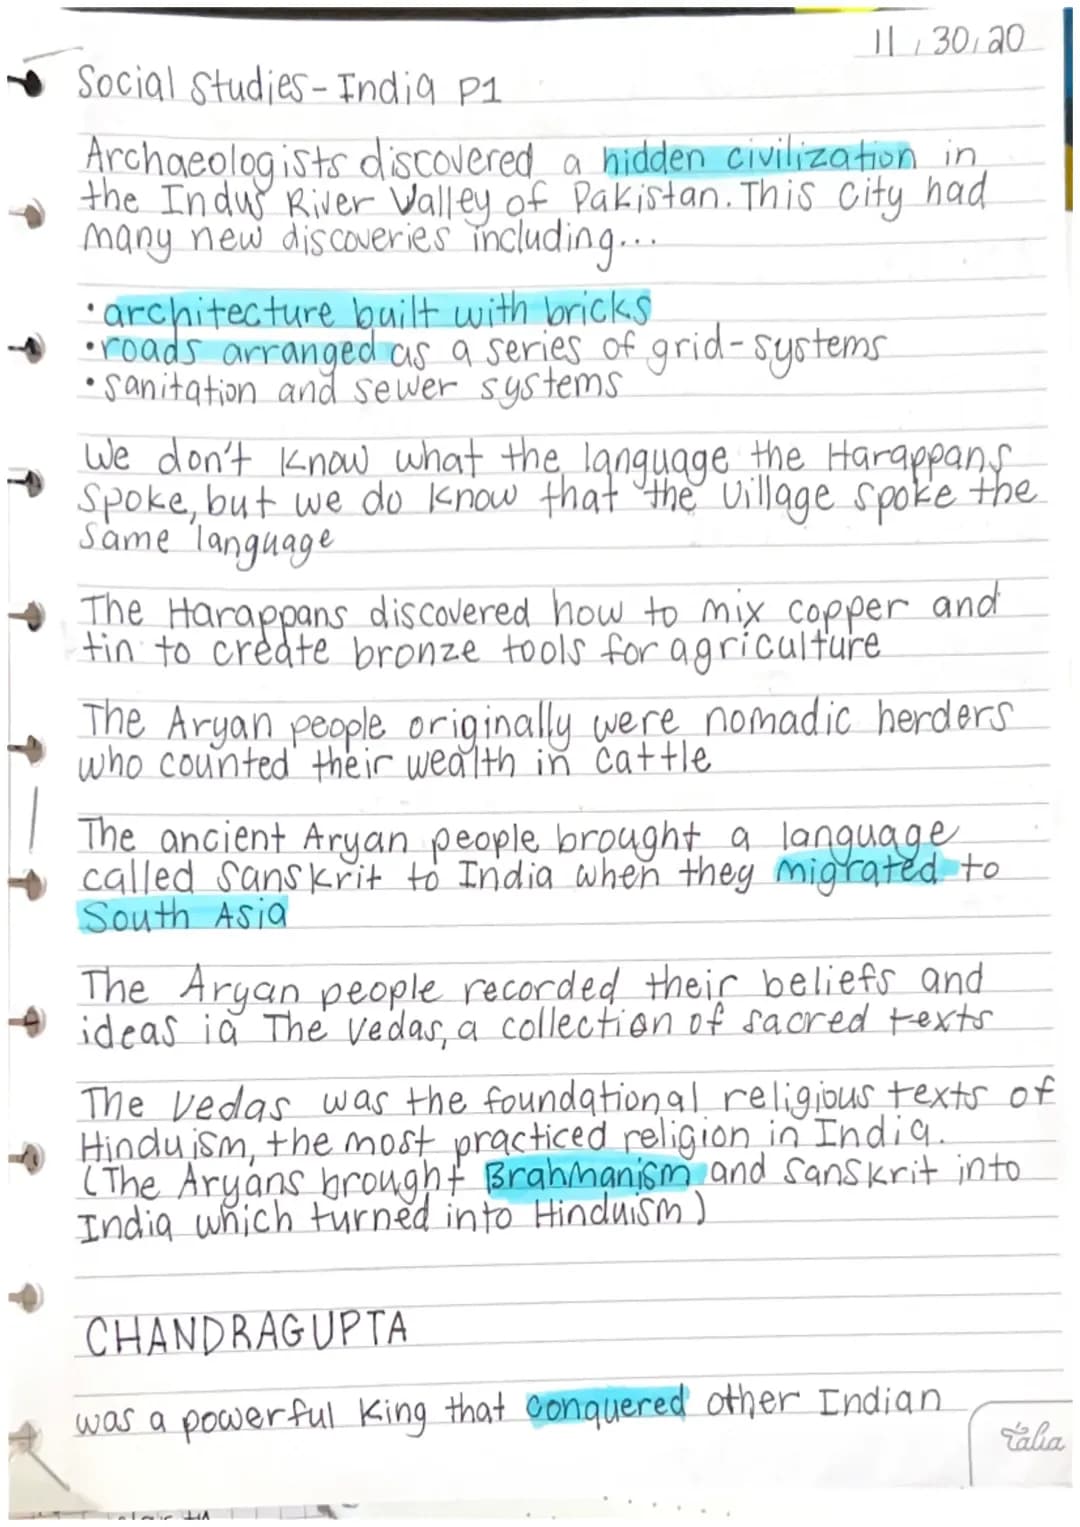 11/30/20
Social Studies - India P1
Archaeologists discovered a hidden civilization in
the Indus River Valley of Pakistan. This city had
many new discoveries including...
• architecture built with bricks
• roads arranged as a series of grid-systems
• sanitation and sewer systems
We don't know what the language the Harappans
spoke, but we do know that the village spoke the
same language
The Harappans discovered how to mix copper and
tin to create bronze tools for agriculture
The Aryan people originally were nomadic herders
who counted their wealth in cattle
The ancient Aryan people brought a language
called Sanskrit to India when they migrated to
South Asia
The Aryan people recorded their beliefs and
ideas in The Vedas, a collection of sacred texts
The Vedas was the foundational religious texts of
Hinduism, the most practiced religion in India.
(The Aryans brought Brahmanism and Sanskrit into
India which turned into Hinduism)
CHANDRAGUPTA
was a powerful King that conquered other Indian
talia